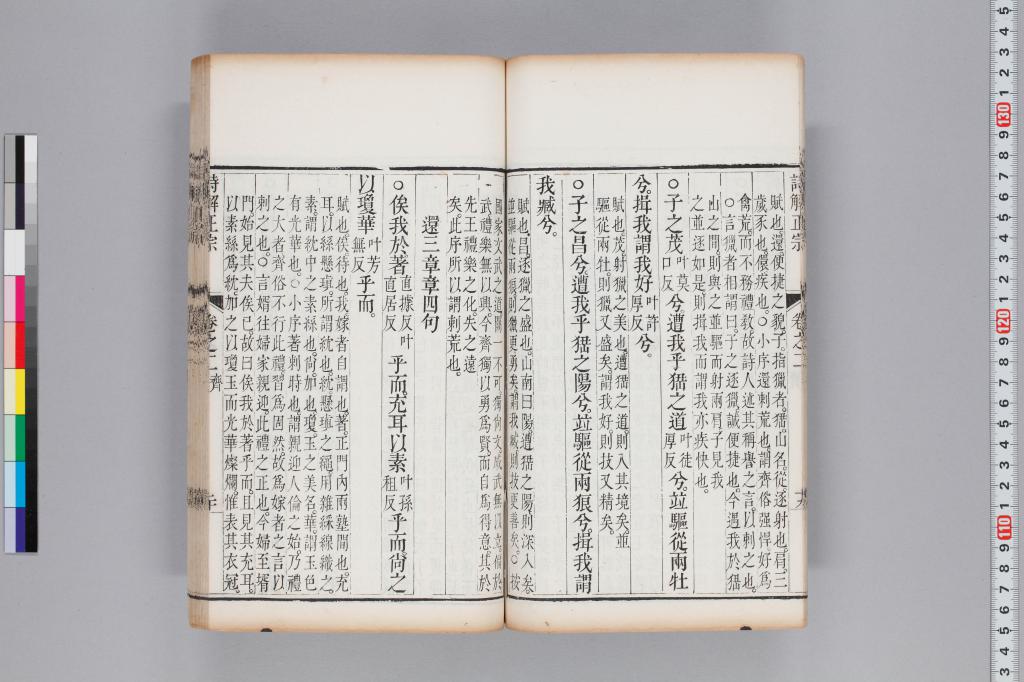 詩解正宗
卷之二
賦也還便捷之貌子指獵者猺山名從逐射也肩三
歲豕也儇疾也○小序還刺荒也謂齊俗强悍好爲
禽荒而不務禮敎故詩人述其稱譽之言以刺之也
○言獵者相謂曰子之逐獵誠便捷也今遇我於猺
山之間則與之並驅而射兩肩子見我
之並逐如是則揖我而謂我亦疾快也
○子之茂叶莫口反兮遭我乎猺之道叶徒厚反兮並驅從兩牡
兮揖我謂我好叶許厚反兮
賦也茂射獵之美也遭猺之道則入其境矣並
驅從兩牡則獵又盛矣謂我好則技又精矣
○子之昌兮遭我乎猺之陽兮竝驅從兩狼兮揖我謂
我臧兮
賦也昌逐獵之盛也山南曰陽遭猺之陽則深入矣
並驅從兩狼則獵更勇矣謂我臧則技更善矣○按
國家文武之道闕一不可獨尙文成武無以立獨於
武禮樂無以興今齊獨以勇爲賢而自爲得意其於
先王禮樂之化失之遠
矣此序所以謂刺荒也
還三章章四句
○俟我於著直據反叶直居反乎而充耳以素叶孫租反乎而尙之
以瓊華叶芳無反乎而
賦也俟待也我嫁者自謂也著正門內兩塾間也充
耳以絲懸瑱所謂紞也紞懸瑱之繩用雜綵線織之
素謂紞中之素絲也尙加也瓊玉之美名華謂玉色
有光華也○小序著刺時也謂親迎人倫之始乃禮
之大者齊俗不行此禮習爲固然故爲嫁者之言以
刺之也○言婿往婦家親迎此禮之正也今婦至壻
門始見其夫俟已故曰俟我於著乎而且見其充耳
以素絲爲紞加之以瓊玉而光華燦爛惟表其衣冠
詩解正宗
卷之二 齊
二十